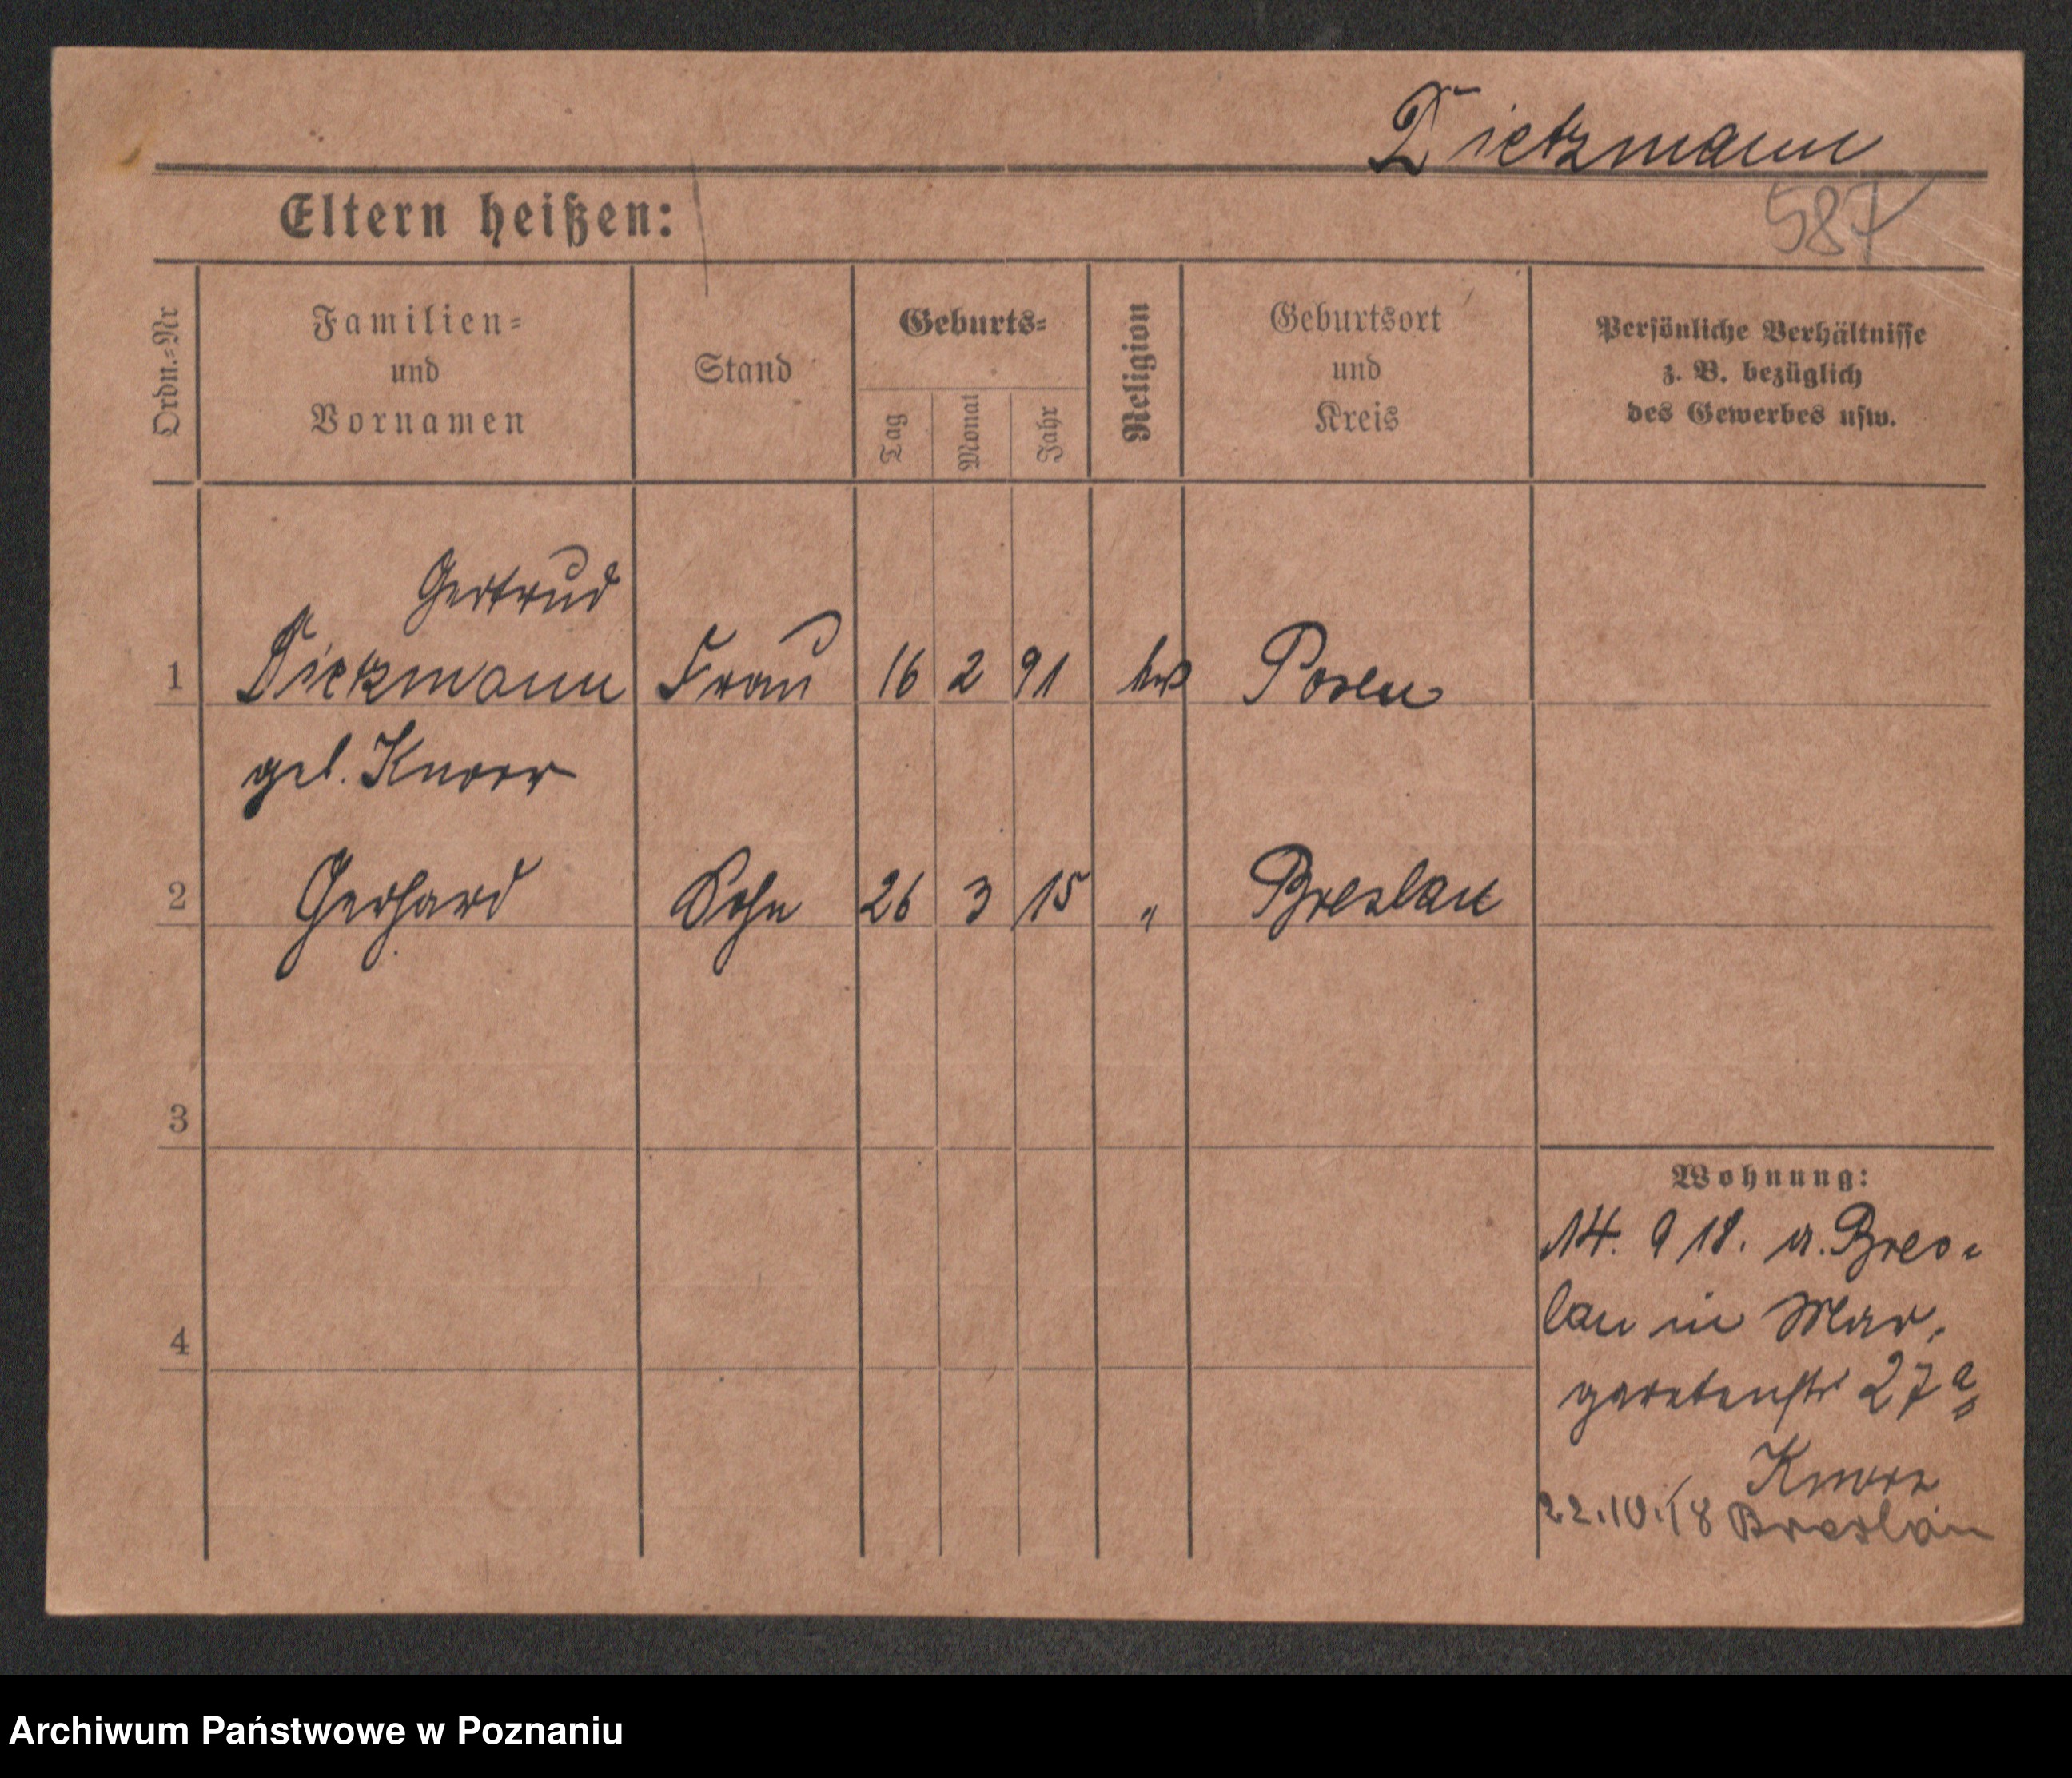 Dietzmann
587
Eltern heißen:
Ordn.=Nr
Familien=
und
Vornamen
Stand
Geburts=
Tag
Monat
Jahr
Religion
Geburtsort
und
Kreis
Persönliche Verhältnisse
z. B. bezüglich
des Gewerbes usw.
Gertrud
1 Dietzmann Frau 16 2 91 Posen
geb. Knorr
2 Gerhard Sohn 26 3 15 " Breslau
3
4
Wohnung:
14. 9 18. a. Bres=
lau in Mar=
garetenstr 27a
Knorr
22.10.18 Breslau
Archiwum Państwowe w Poznaniu